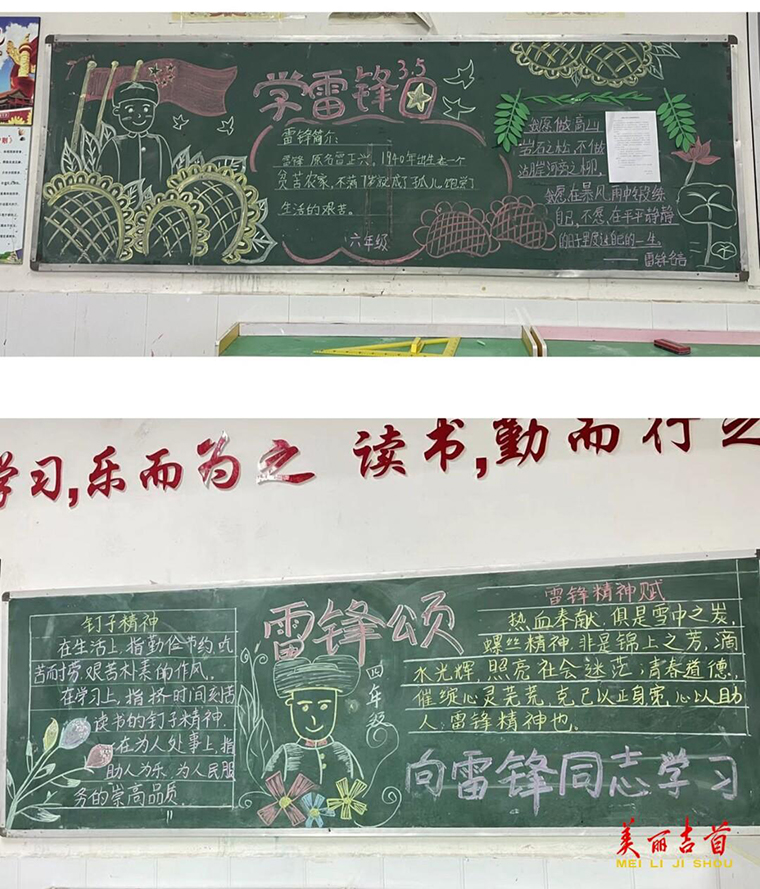 学雷锋
3.5
雷锋简介:
雷锋,原名雷正兴,1940年出生在一个
贫苦农家,不满7岁就成了孤儿,饱尝了
生活的艰苦。
六年级
我愿做高山
岩石之松,不做
湖岸河旁之柳,
我愿在暴风雨中锻炼
自己,不愿在平平静静
的日子里度过自己的一生。
——雷锋名言
学习,乐而为之 读书,勤而行之
钉子精神
在生活上,指勤俭节约,吃
苦而耐劳,艰苦朴素的作风。
在学习上,指挤时间刻苦
读书的钉子精神.
在为人处事上,指
助人为乐、为人民服
务的崇高品质.
雷锋颂
四年级
雷锋精神赋
热血奉献,俱是雪中之炭,
螺丝精神,非是锦上之芳,滴
水光辉,照亮社会迷茫;青春道德,
催绿心灵芜荒,克己以正身宽,心以助
人,雷锋精神也.
向雷锋同志学习
美丽吉首
MEI LI JI SHOU